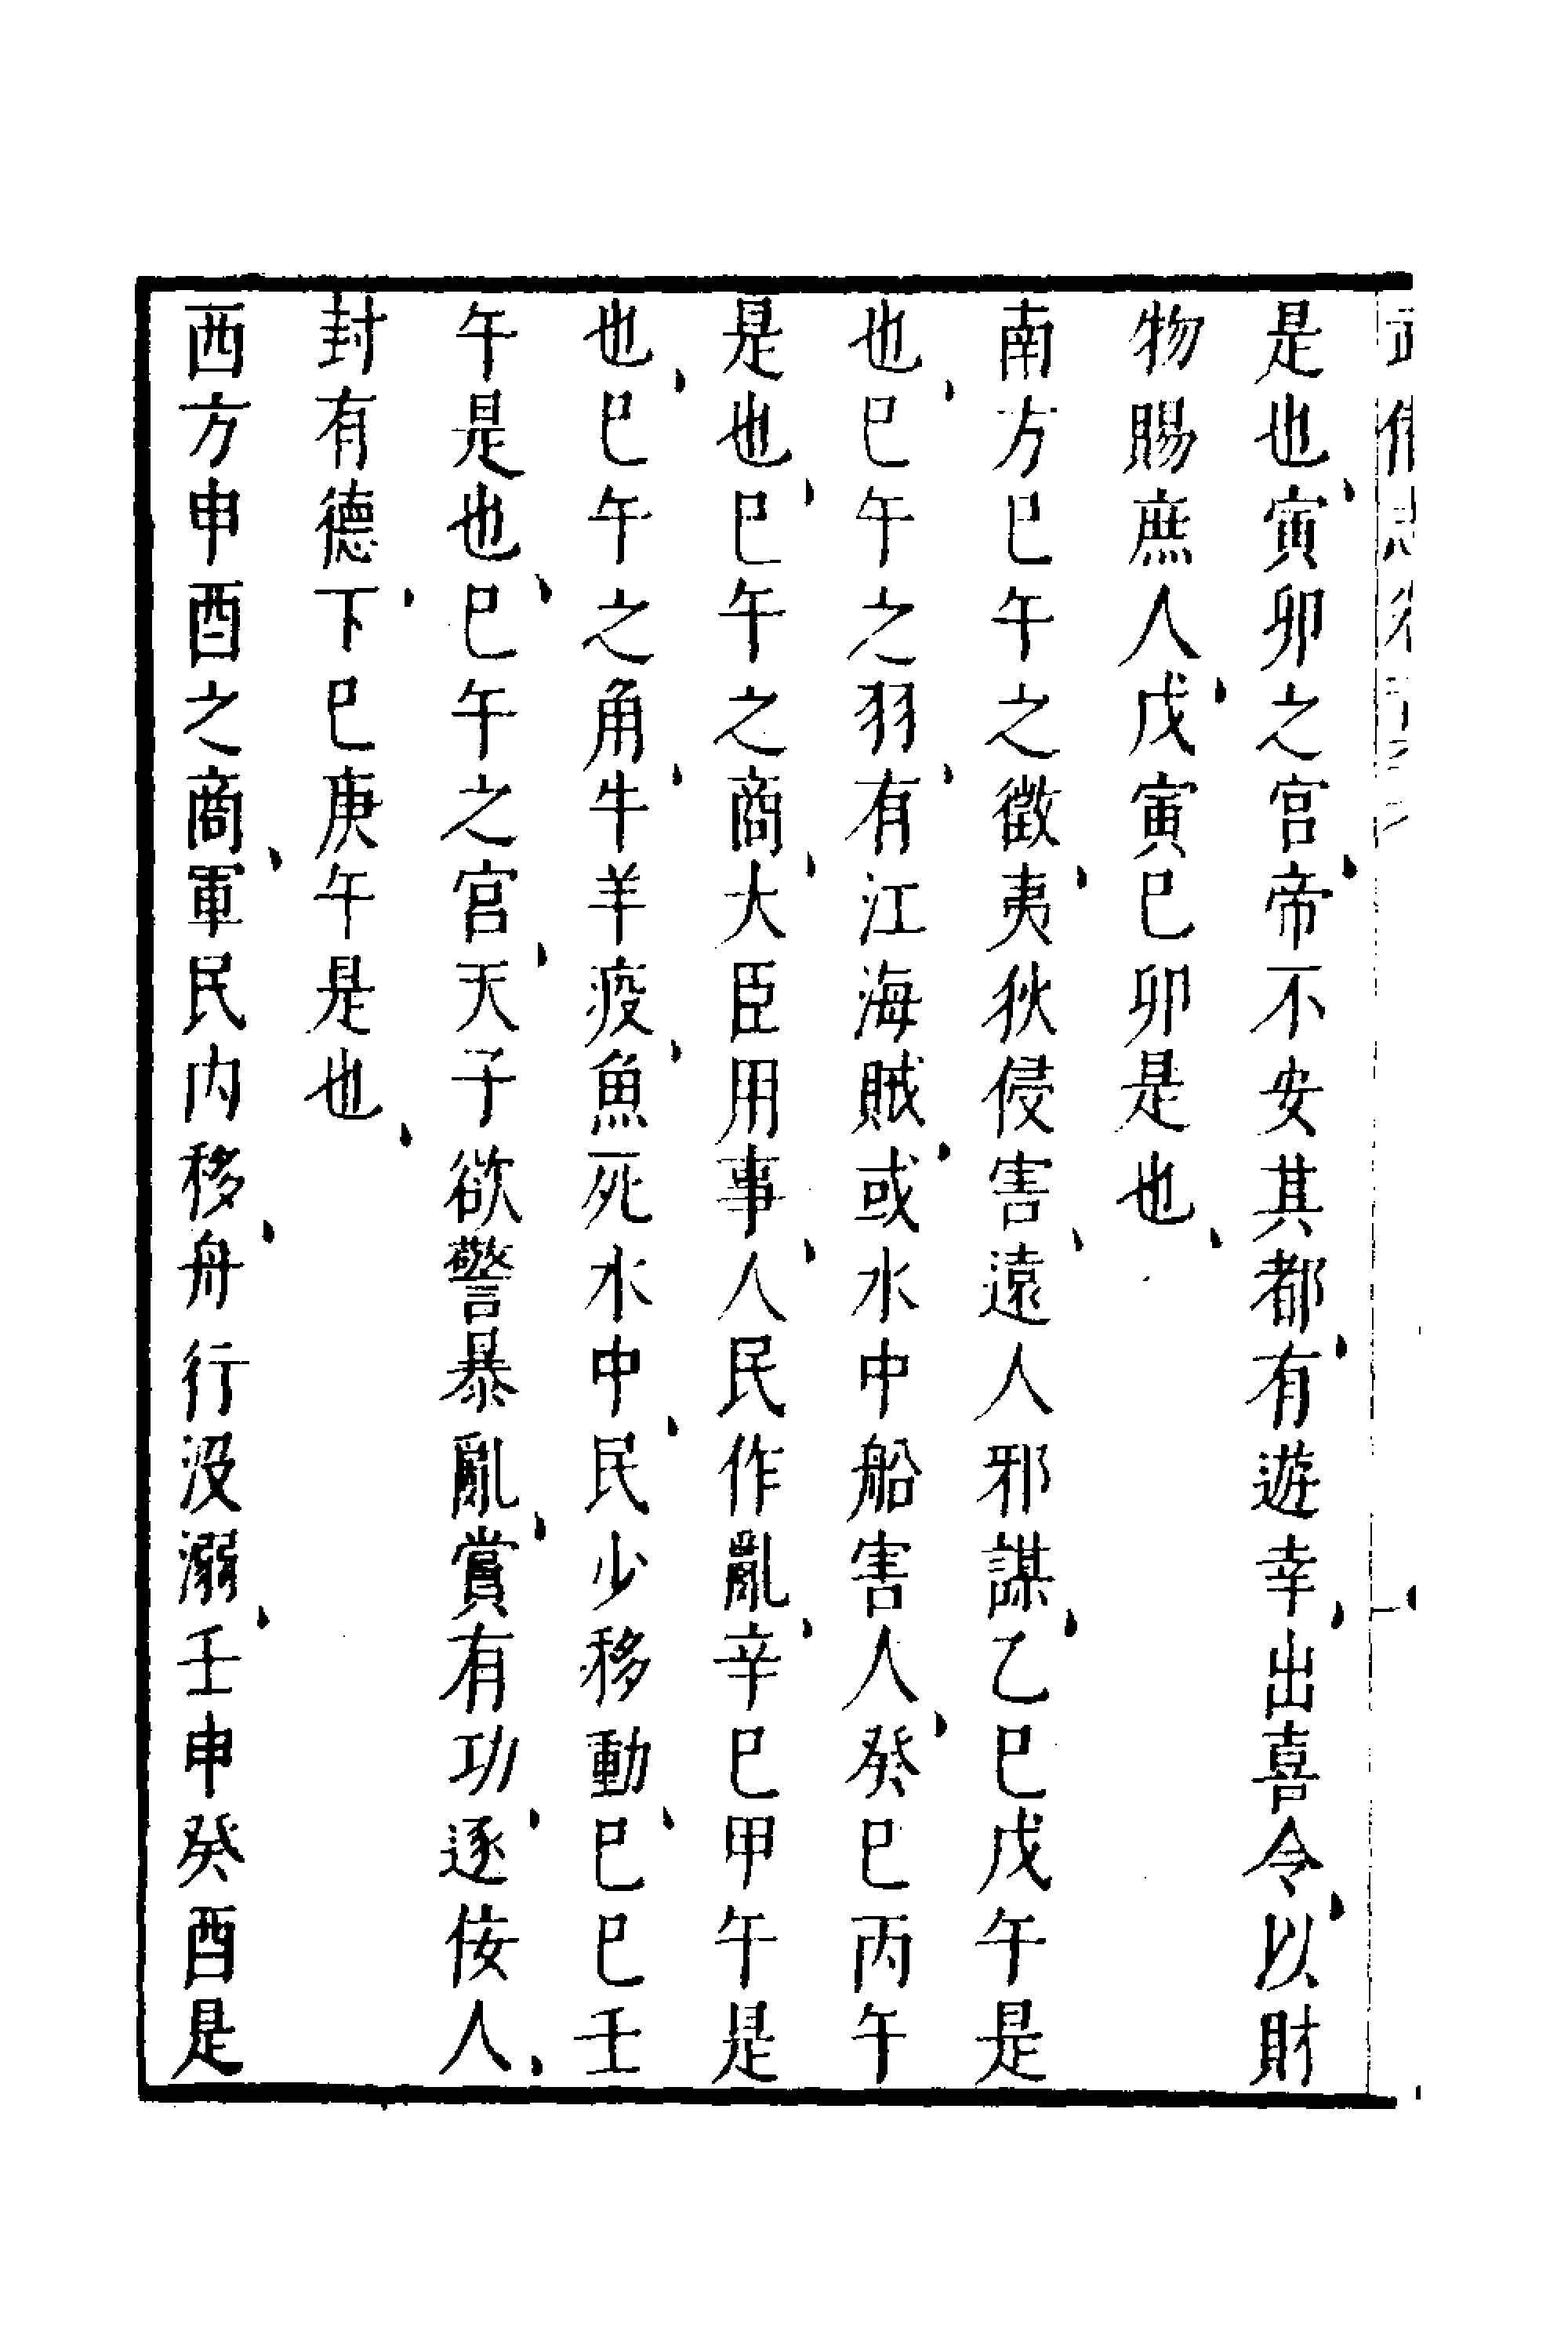 是也寅卯之宮帝不安其都有遊幸出喜令以財
物賜庶人戊寅巳卯是也
南方巳午之徵夷狄侵害遠人邪謀乙巳戊午是
也巳午之羽有江海賊或水中船害人癸巳丙午
是也巳午之商大臣用事人民作亂辛巳甲午是
也巳午之角牛羊疫魚死水中民少移動巳巳壬
午是也巳午之宮天子欲警暴亂賞有功逐佞人
封有德下巳庚午是也
西方申酉之商軍民內移舟行沒溺壬申癸酉是